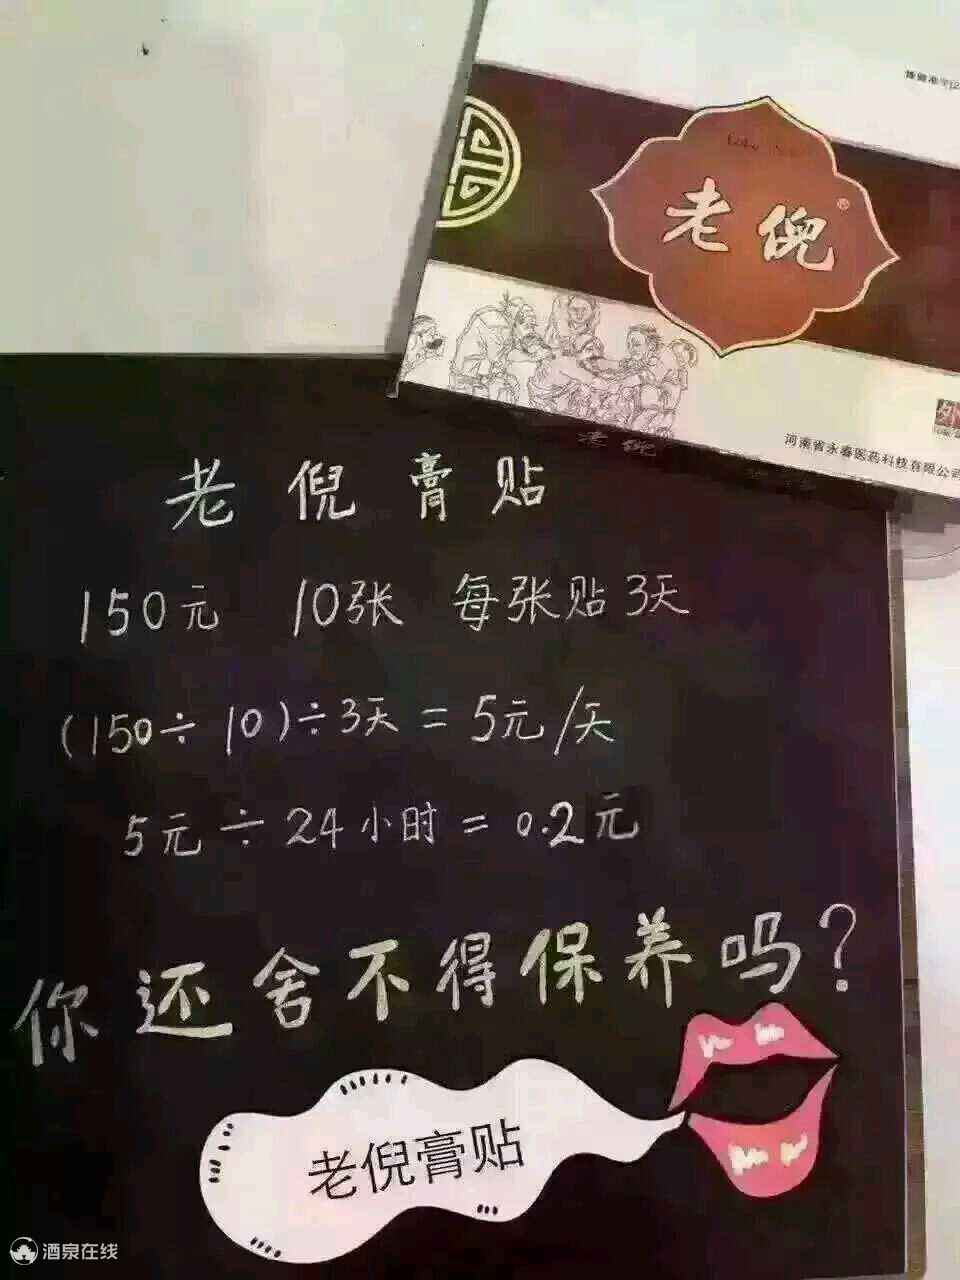 老倪
河南省永春医药科技有限公司
外
老倪
老倪膏贴
150元 10张 每张贴3天
(150÷10)÷3天=5元/天
5元÷24小时=0.2元
你还舍不得保养吗?
老倪膏贴
酒泉在线